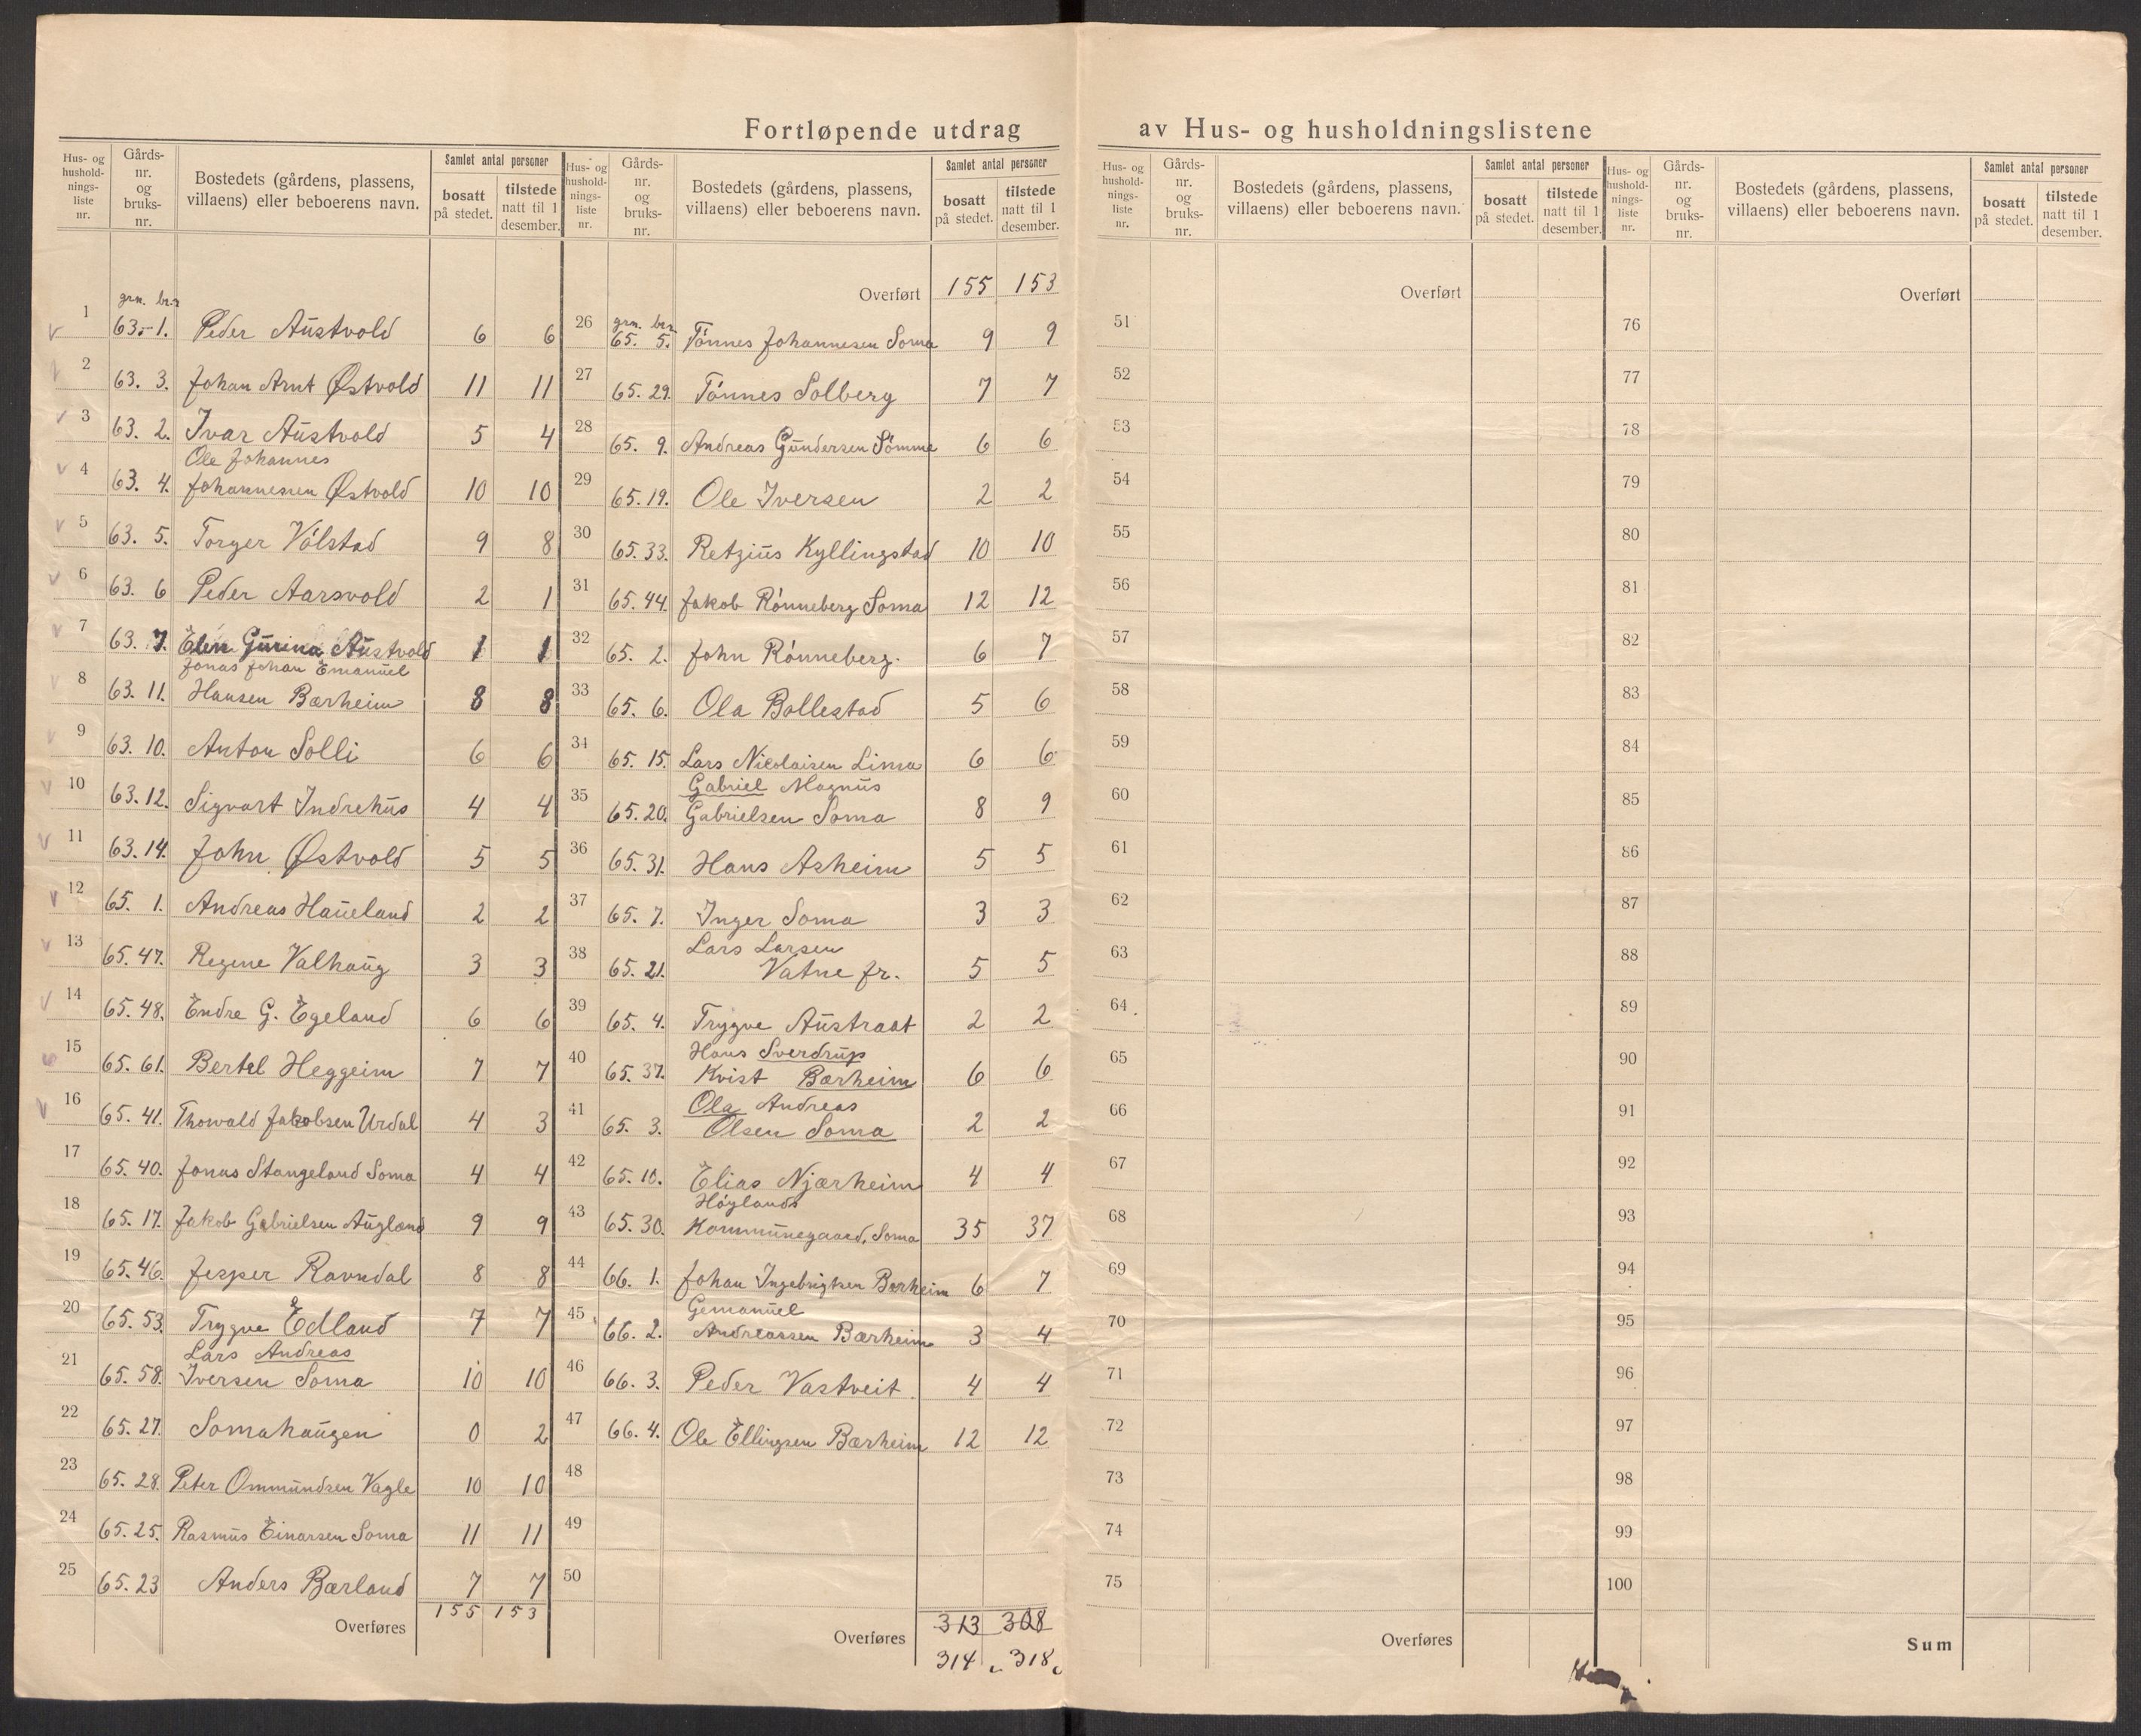 Fortløpende utdrag av Hus- og husholdningslistene
Hus- og husholdningsliste nr. Gårds-nr. og bruks-nr. Bostedets (gårdens, plassens, villaens) eller beboerens navn. Samlet antal personer bosatt på stedet. tilstede natt til 1 desember.
grn. brn
1 63.-1. Peder Austvold 6 6
2 63. 3. Johan Arnt Østvold 11 11
3 63. 2. Ivar Austvold 5 4
Ole Johannes
4 63. 4. Johannessen Østvold 10 10
5 63. 5. Torger Vólstad 9 8
6 63. 6 Peder Aarsvold 2 1
7 63. 7. Elen Gurina Austvold 1 1
Jonas Johan Emanuel
8 63. 11. Hansen Bærheim 8 8
9 63. 10. Anton Solli 6 6
10 63. 12. Sigvart Indrehus 4 4
11 63. 14. John Østvold 5 5
12 65. 1. Andreas Haueland 2 2
13 65. 47. Regine Valhaug 3 3
14 65. 48. Endre G. Egeland 6 6
15 65. 61. Bertel Heggeim 7 7
16 65. 41. Thorvald Jakobsen Urdal 4 3
17 65. 40. Jonas Stangeland Soma 4 4
18 65. 17. Jakob Gabrielsen Augland 9 9
19 65. 46. Jesper Ravndal 8 8
20 65. 53. Trygve Edland 7 7
Lars Andreas
21 65. 58. Iversen Soma 10 10
22 65. 27. Somahaugen 0 2
23 65. 28. Peter Ommundsen Vagle 10 10
24 65. 25. Rasmus Einarsen Soma 11 11
25 65. 23 Anders Bærland 7 7
Overføres 155 153
Hus- og husholdningsliste nr. Gårds-nr. og bruks-nr. Bostedets (gårdens, plassens, villaens) eller beboerens navn. Samlet antal personer bosatt på stedet. tilstede natt til 1 desember.
Overført 155 153
grn. brn
26 65. 5. Tónnes Johannesen Soma 9 9
27 65. 29. Tónnes Solberg 7 7
28 65. 9. Andreas Gundersen Sómme 6 6
29 65. 19. Ole Iversen 2 2
30 65. 33. Retzius Kyllingstad 10 10
31 65. 44. Jakob Rónneberg Soma 12 12
32 65. 2. John Rónneberg. 6 7
33 65. 6. Ola Bollestad 5 6
34 65. 15. Lars Nicolaisen Lima 6 6
Gabriel Magnus
35 65. 20. Gabrielsen Soma 8 9
36 65. 31. Hans Asheim 5 5
37 65. 7. Inger Soma 3 3
Lars Larsen
38 65. 21. Vatne jr. 5 5
39 65. 4. Trygve Austraat 2 2
Hans Sverdrup
40 65. 37. Kvist Bærheim 6 6
Ola Andreas
41 65. 3. Olsen Soma 2 2
42 65. 10. Elias Njærheim 4 4
Hóylands
43 65. 30. Kommunegaard, Soma 35 37
44 66. 1. Johan Ingebrigtsen Bærheim 6 7
Gemanuel
45 66. 2. Andreassen Bærheim 3 4
46 66. 3. Peder Vastveit 4 4
47 66. 4. Ole Ellingsen Bærheim 12 12
48
49
50
Overføres 313 308
314 318
Hus- og husholdningsliste nr. Gårds-nr. og bruks-nr. Bostedets (gårdens, plassens, villaens) eller beboerens navn. Samlet antal personer bosatt på stedet. tilstede natt til 1 desember.
Overført
51
52
53
54
55
56
57
58
59
60
61
62
63
64
65
66
67
68
69
70
71
72
73
74
75
Overføres
Hus- og husholdningsliste nr. Gårds-nr. og bruks-nr. Bostedets (gårdens, plassens, villaens) eller beboerens navn. Samlet antal personer bosatt på stedet. tilstede natt til 1 desember.
Overført
76
77
78
79
80
81
82
83
84
85
86
87
88
89
90
91
92
93
94
95
96
97
98
99
100
Sum